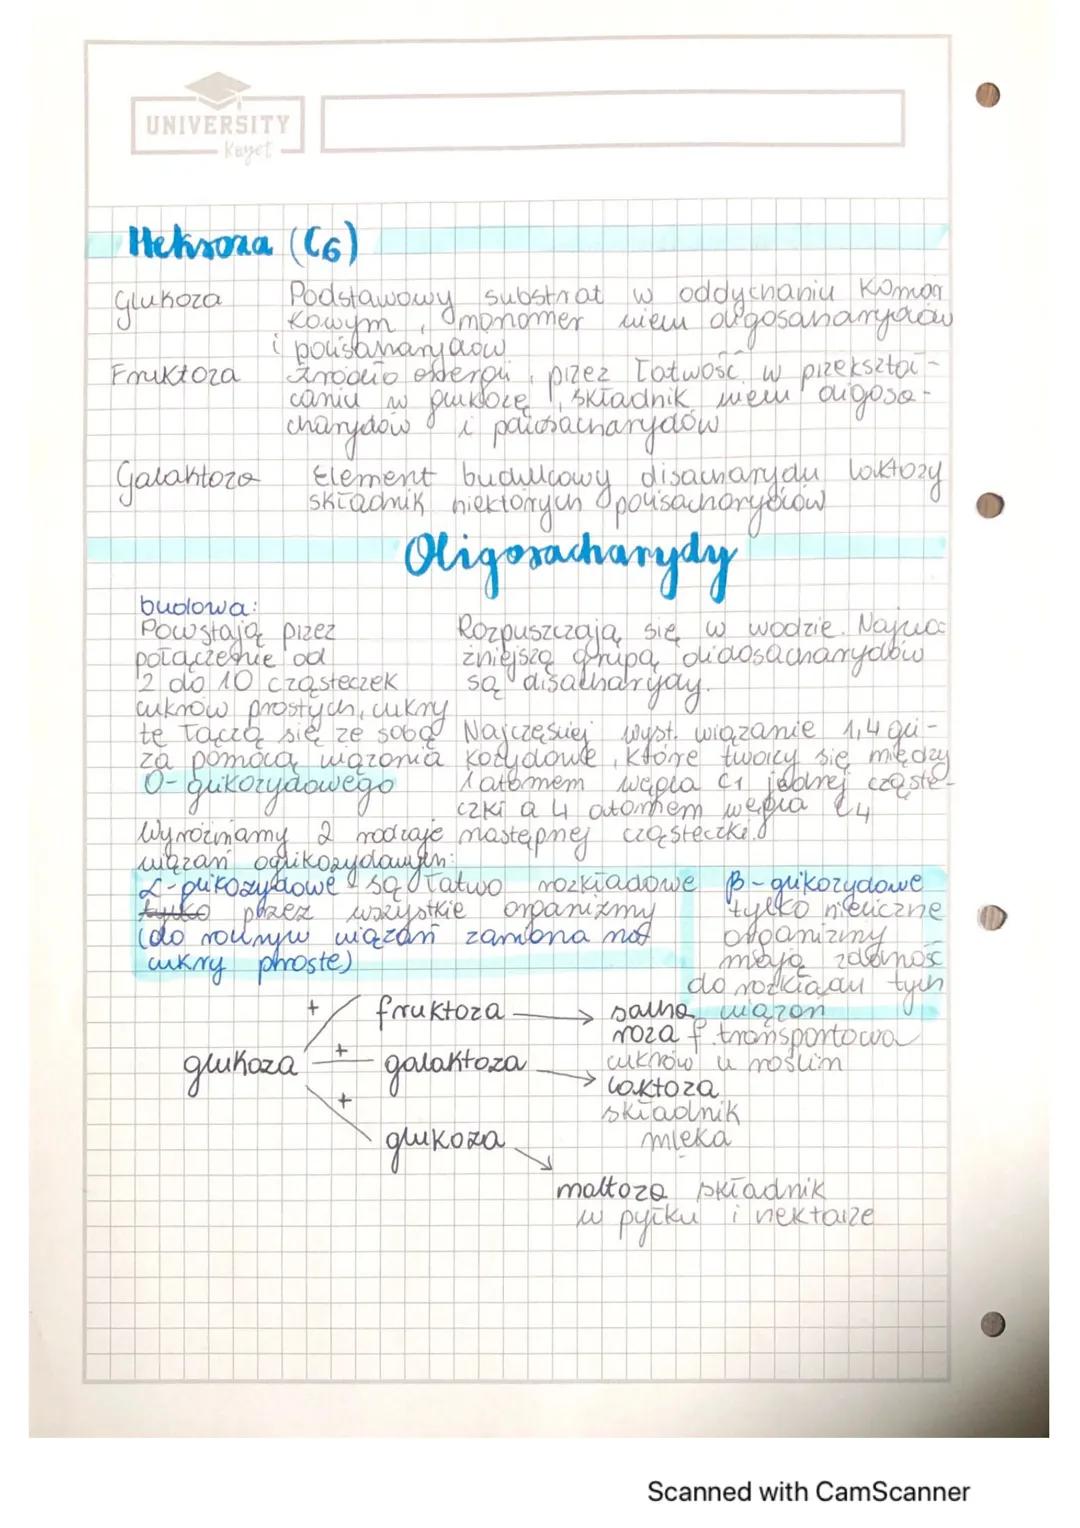 UNIVERSITY
Kayet
Heksoza (C6)
Glukoza Podstawowy substrat w oddychaniu komór
kowym, monomer wielu oligosacharydów
i polisacharydów
Fruktoza źródło energii, przez łatwość w przekształ-
caniu w glukozę, składnik wielu oligosa-
charydów i polisacharydów
Galaktoza Element budulcowy disacharydu laktozy
składnik niektórych polisacharydów
Oligosacharydy
budowa:
Powstają przez
połączenie od
2 do 10 cząsteczek
cukrów prostych, cukry
te łączą się ze sobą
za pomocą wiązania
O-glikozydowego
Rozpuszczają się w wodzie. Najwa
żniejszą grupą oligosacharydów
są disacharydy.
Najczęściej wyst. wiązanie 1,4 gli-
kozydowe, które tworzy się między
1 atomem węgla C1 jednej cząste-
czki a 4 atomem węgla C4
następnej cząsteczki.
Wyróżniamy 2 rodzaje
wiązań
α-glikozydowe są łatwo rozkładowe
tylko przez wszystkie organizmy
(do wiązań na
cukry proste)
β-glikozydowe
tylko nieliczne
organizmy
mają zdolność
do rozkładu tych
wiązań
glukoza
+ fruktoza → sacha
roza f. transportowa
cukrów u roślin
+ galaktoza → laktoza
składnik
mleka
+ glukoza → maltoza składnik
w pyłku i nektarze
Scanned with CamScanner